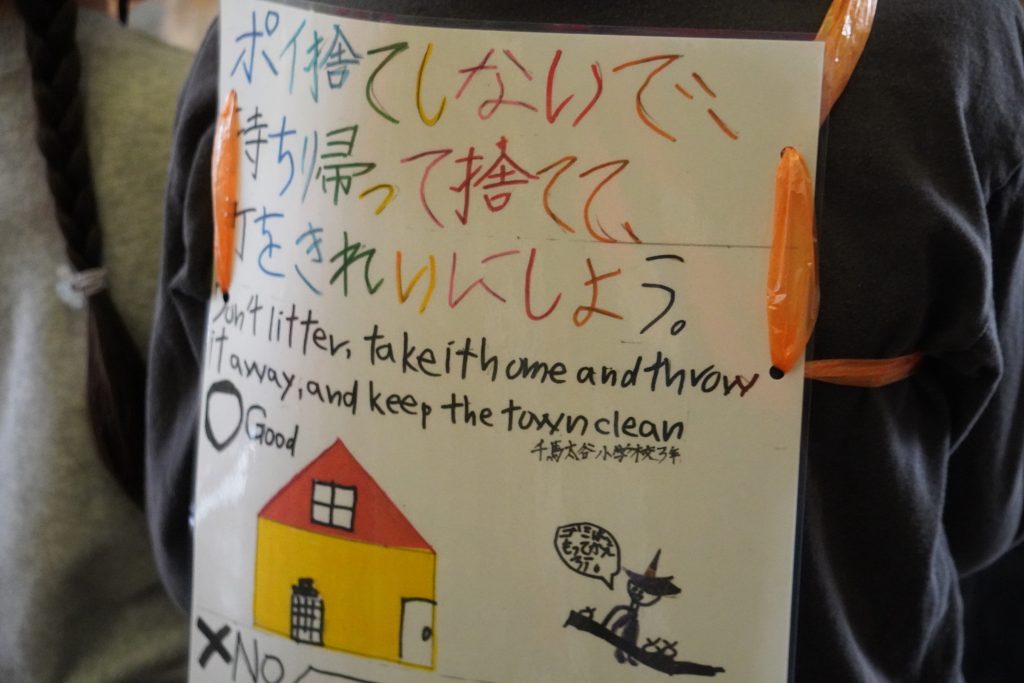 ポイ捨てしないで、
持ち帰って捨てて、
町をきれいにしよう。
Don't litter, take it home and throw
it away, and keep the town clean
千馬太谷小学校3年
○Good
ゴミは
もってかえ
ろう。
×NO